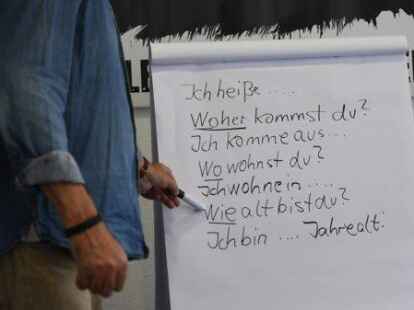 Ich heiße ....
Woher kommst du?
Ich komme aus ...
Wo wohnst du?
Ich wohne in ....
Wie alt bist du?
Ich bin .... Jahre alt.